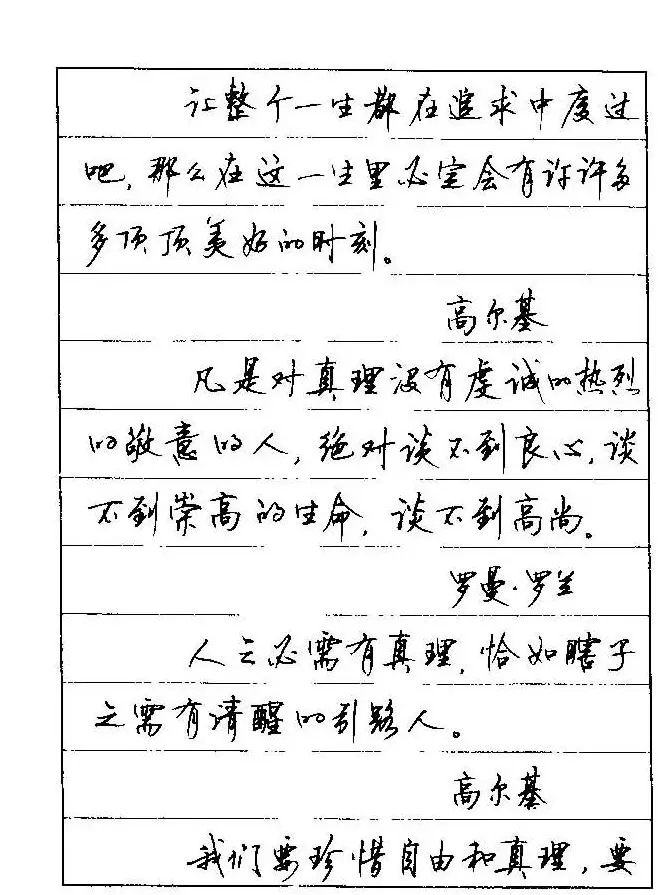 让整个一生都在追求中度过
吧，那么在这一生里必定会有许许多
多顶顶美好的时刻。
高尔基
凡是对真理没有虔诚的热烈
的敬意的人，绝对谈不到良心，谈
不到崇高的生命，谈不到高尚。
罗曼·罗兰
人之必需有真理，恰如瞎子
之需有清醒的引路人。
高尔基
我们要珍惜自由和真理，要